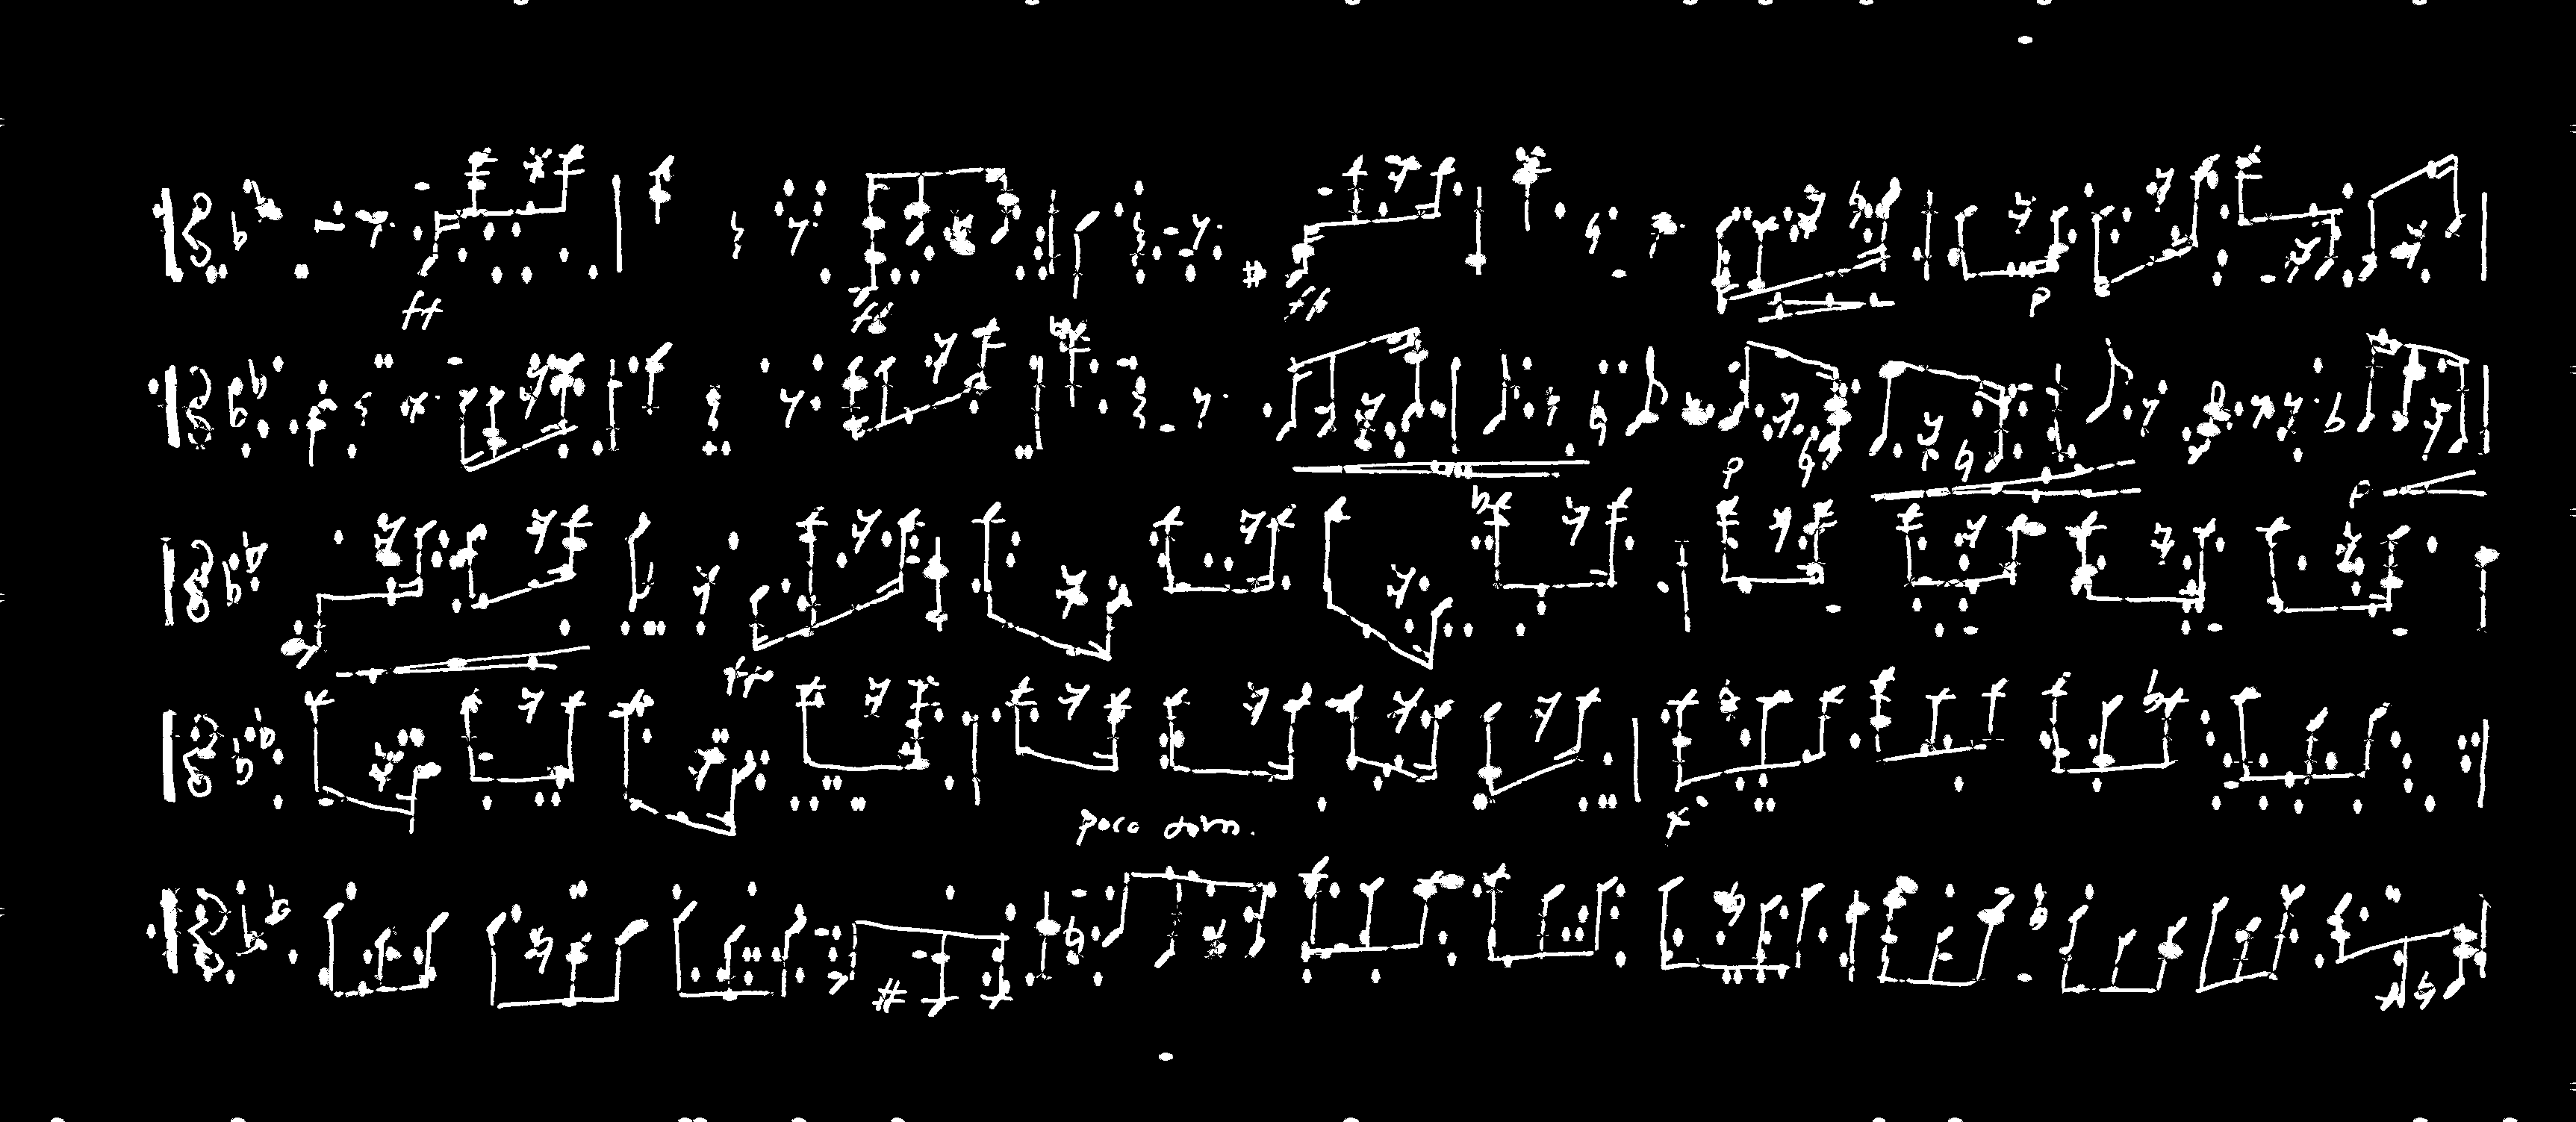 ff ff ff p
p p
fp
poco dim.
f